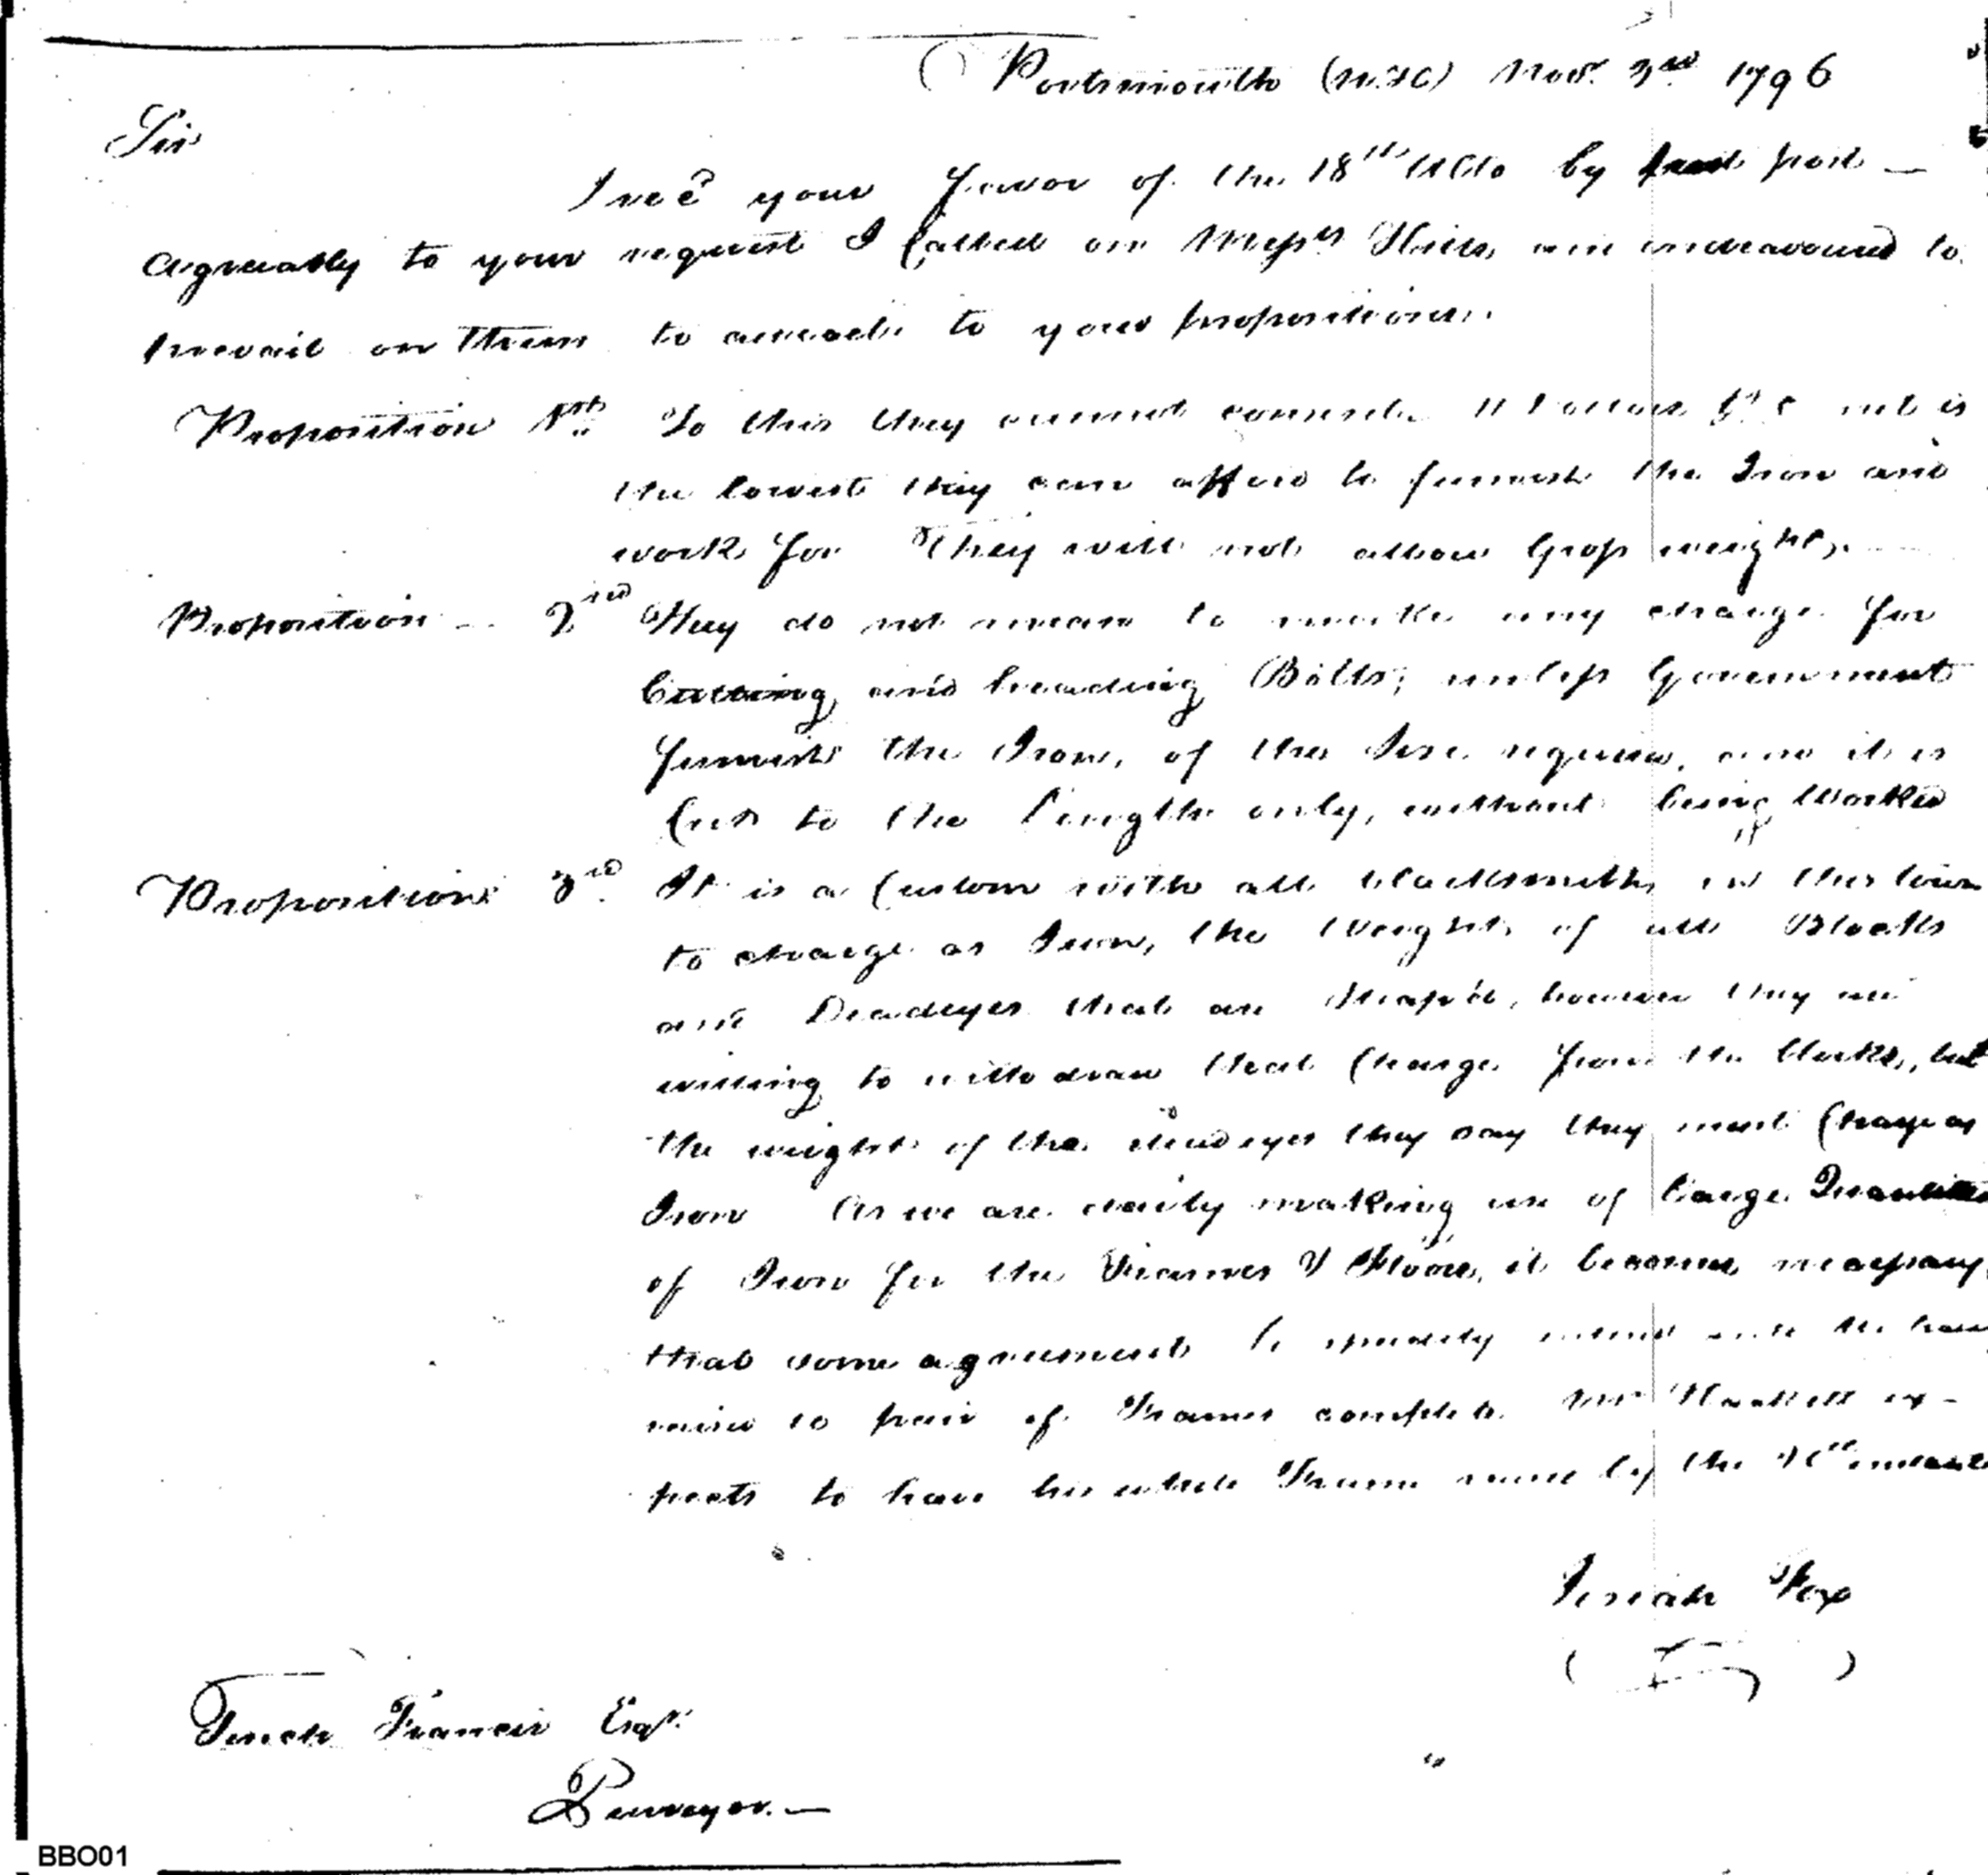 Portsmouth (N.H) Novr. 3rd 1796
Sir
I recd your favor of the 18th Ulto by last post —
agreeably to your request I Called on Messrs Hills, and endeavoured to
prevail on them to accede to your propositions.
Proposition 1st. To this they cannot consent. 11 Dollars is
the lowest they can afford to furnish the Iron and
work for They will not allow Gross weight.
Proposition 2nd They do not mean to make any charge for
Cutting and heading Bolts; unless Government
furnish the Iron, of the Size required, and it is
Cut to the lengths only, without being Worked
Proposition 3rd It is a Custom with all blacksmiths in this town
to charge as Iron, the Weight of all Blocks
and Deadeyes that are Strap'd, however they are
willing to withdraw that Charge from the blocks, but
the weight of the deadeyes they say they must Charge as
Iron As we are daily making use of large Quantities
of Iron for the Frames & Floors, it becomes necessary
that some agreement be speedily entered into We have
raised 10 pair of Frames complete. Mr Hackett ex-
pects to have his whole Frame raised by the
Josiah Fox
Tench Francis Esqr.
Purveyor. —
BBO01